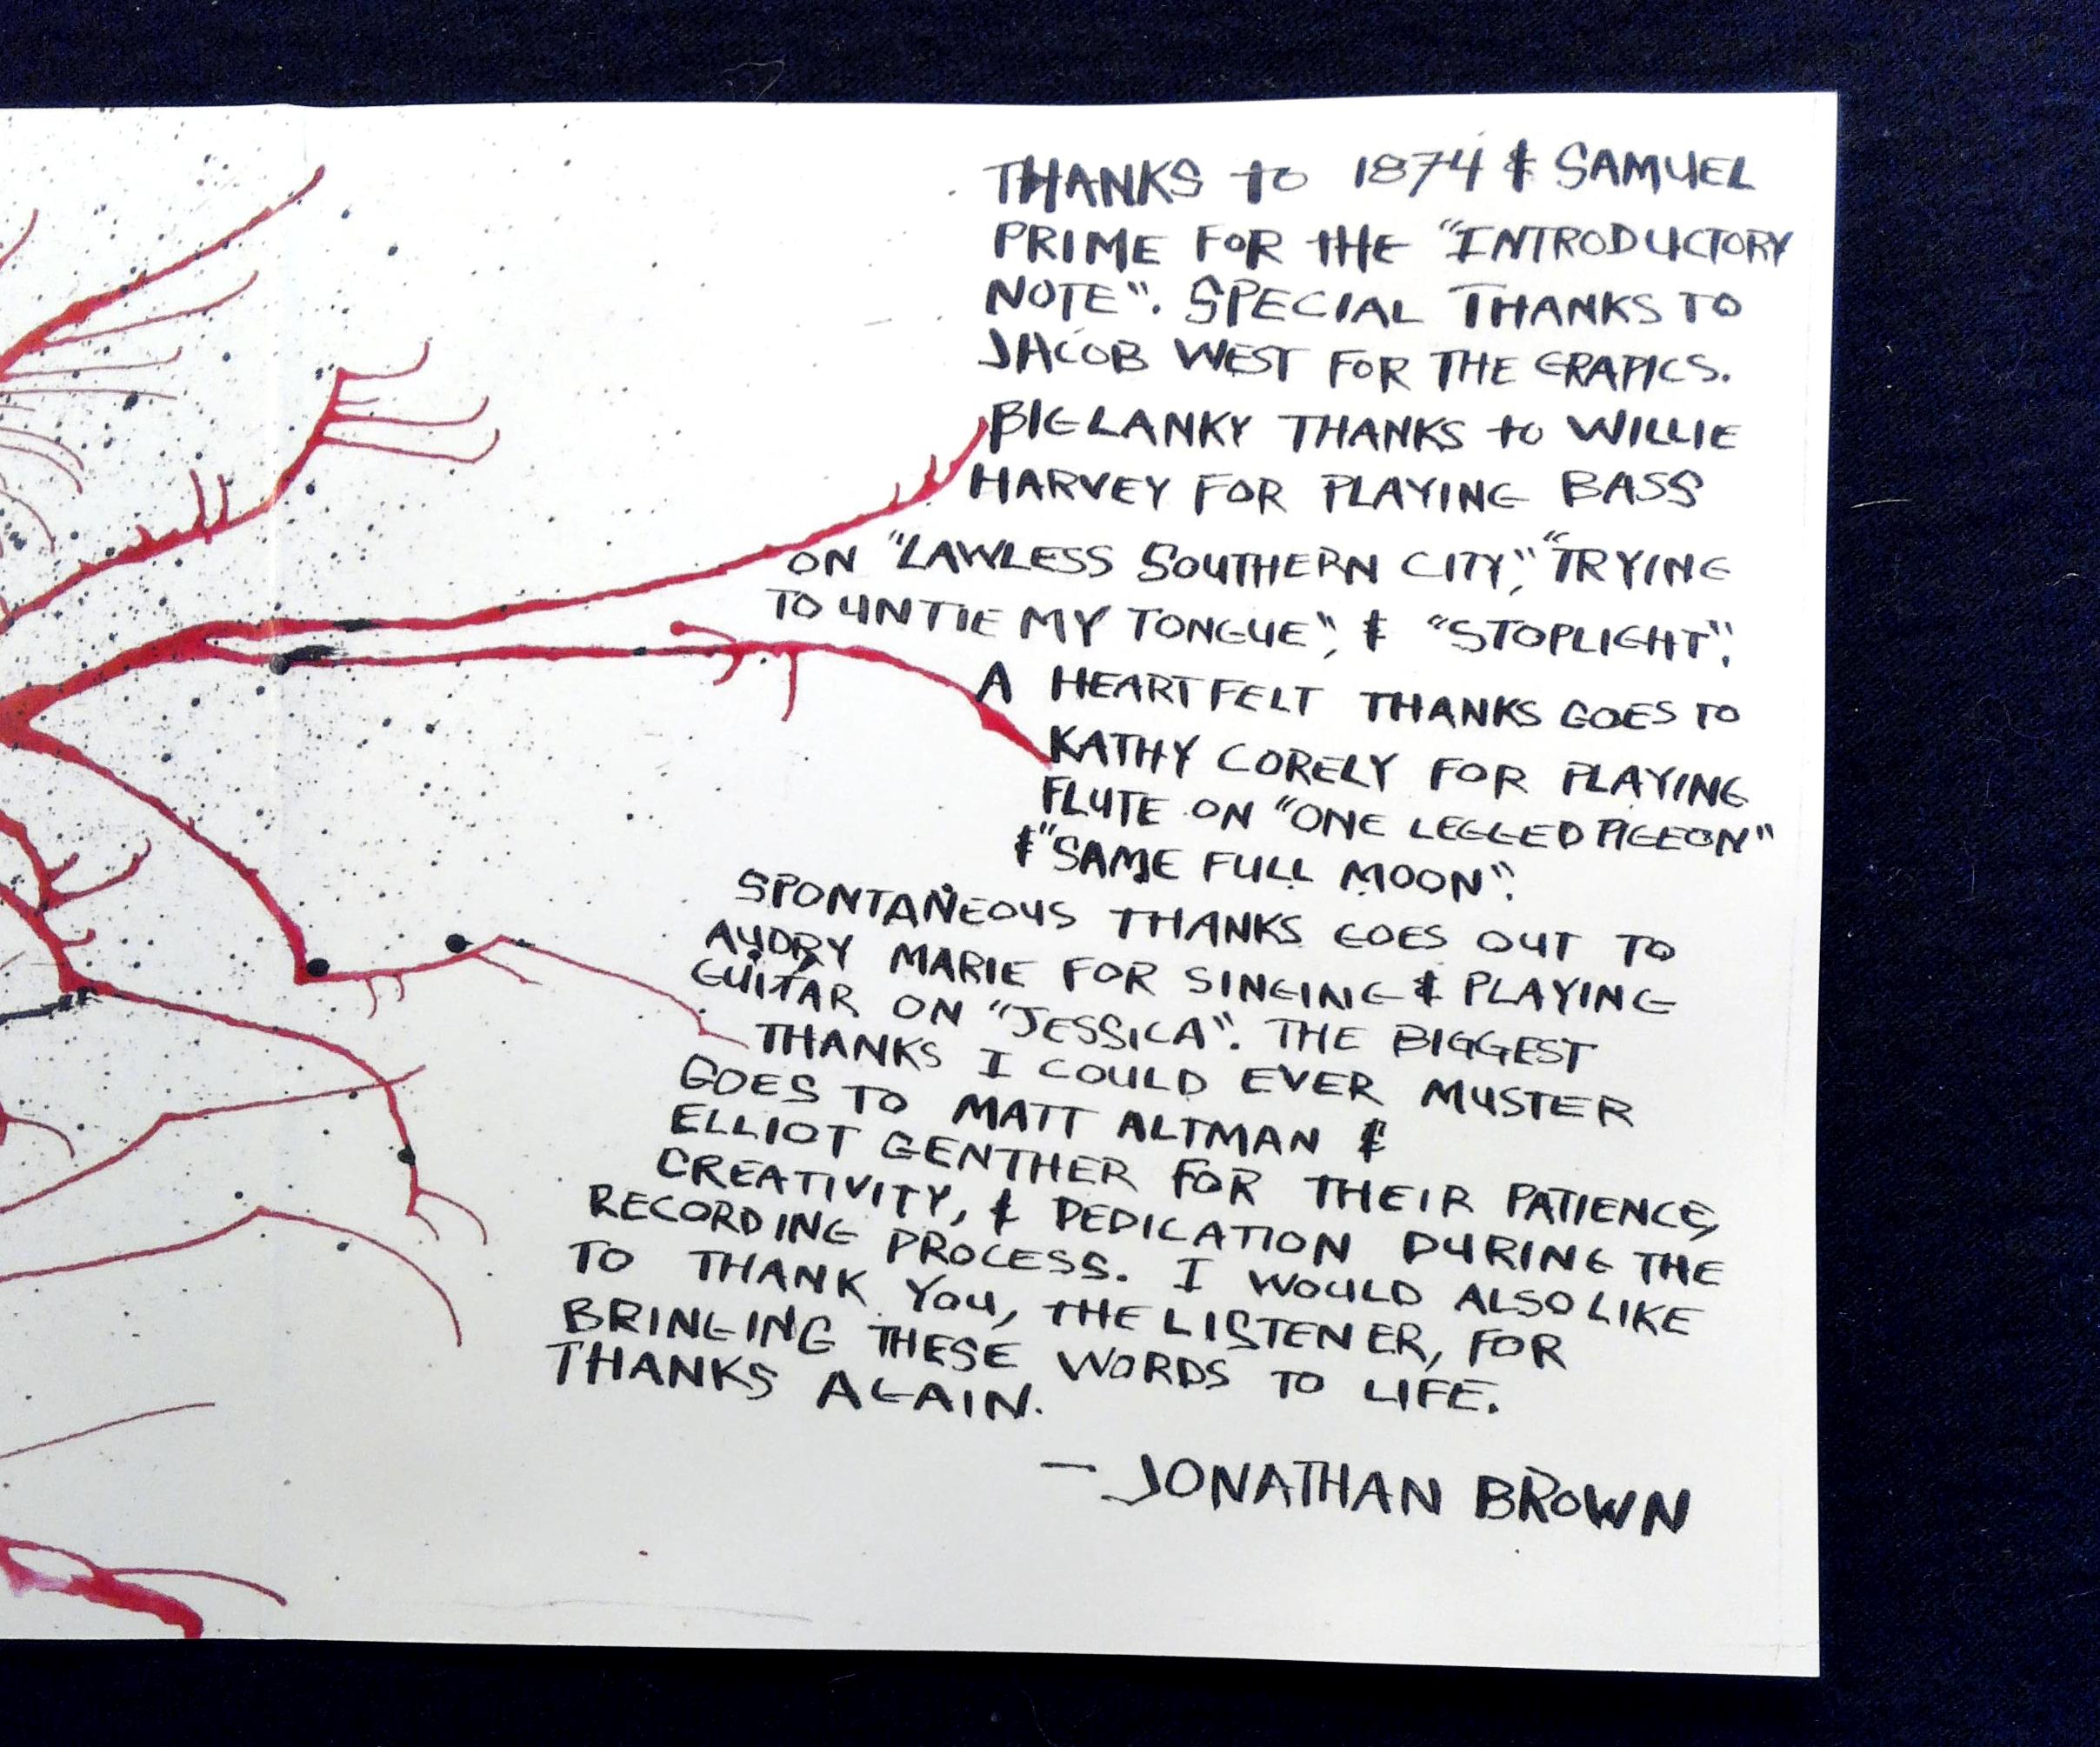 THANKS to 1874 & SAMUEL
PRIME FOR tHE "INTRODUCTORY
NOTE". SPECIAL THANKS TO
JACOB WEST FOR THE GRAPICS.
BIG LANKY THANKS to WILLIE
HARVEY FOR PLAYING BASS
ON "LAWLESS SOUTHERN CITY", "TRYING
TO UNTIE MY TONGUE", & "STOPLIGHT".
A HEARTFELT THANKS GOES TO
KATHY CORELY FOR PLAYING
FLUTE ON "ONE LEGGED PIGEON"
& "SAME FULL MOON".
SPONTANEOUS THANKS GOES OUT TO
AUDRY MARIE FOR SINGING & PLAYING
GUITAR ON "JESSICA". THE BIGGEST
THANKS I COULD EVER MUSTER
GOES TO MATT ALTMAN &
ELLIOT GENTHER FOR THEIR PATIENCE,
CREATIVITY, & DEDICATION DURING THE
RECORDING PROCESS. I WOULD ALSO LIKE
TO THANK YOU, THE LISTENER, FOR
BRINGING THESE WORDS TO LIFE.
THANKS AGAIN.
— JONATHAN BROWN